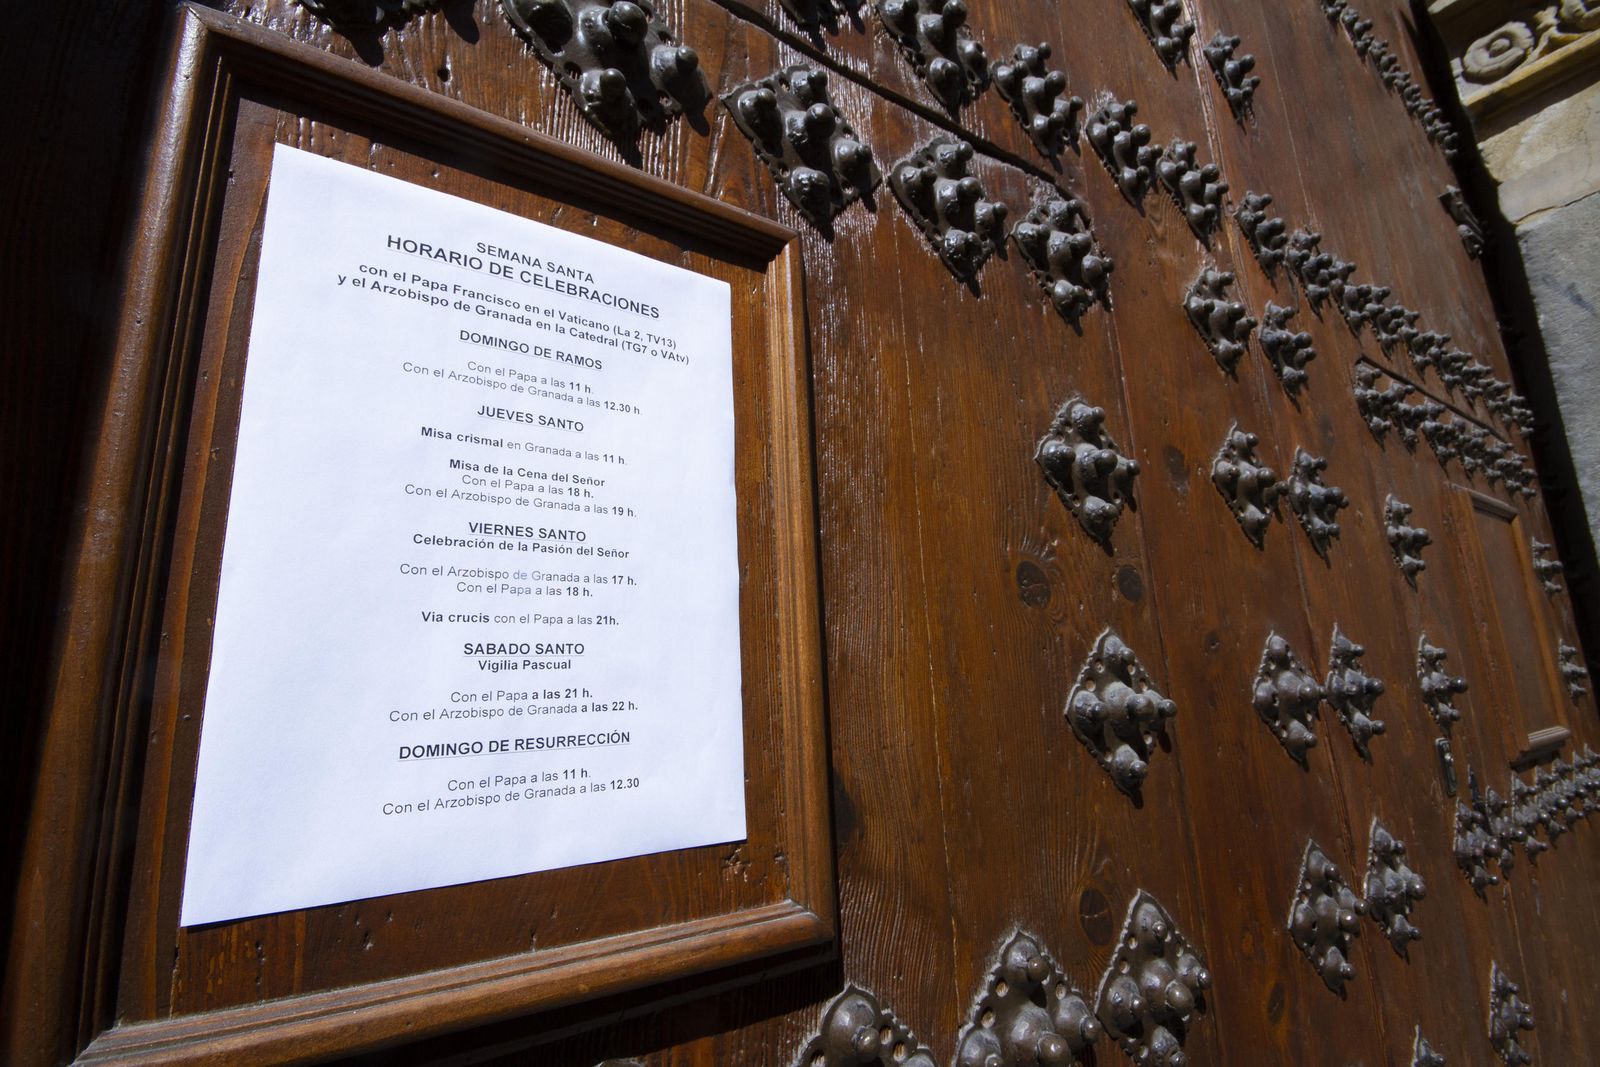 SEMANA SANTA
HORARIO DE CELEBRACIONES
con el Papa Francisco en el Vaticano (La 2, TV13)
y el Arzobispo de Granada en la Catedral (TG7 o VAtv)
DOMINGO DE RAMOS
Con el Papa a las 11 h.
Con el Arzobispo de Granada a las 12.30 h.
JUEVES SANTO
Misa crismal en Granada a las 11 h.
Misa de la Cena del Señor
Con el Papa a las 18 h.
Con el Arzobispo de Granada a las 19 h.
VIERNES SANTO
Celebración de la Pasión del Señor
Con el Arzobispo de Granada a las 17 h.
Con el Papa a las 18 h.
Via crucis con el Papa a las 21h.
SABADO SANTO
Vigilia Pascual
Con el Papa a las 21 h.
Con el Arzobispo de Granada a las 22 h.
DOMINGO DE RESURRECCIÓN
Con el Papa a las 11 h.
Con el Arzobispo de Granada a las 12.30